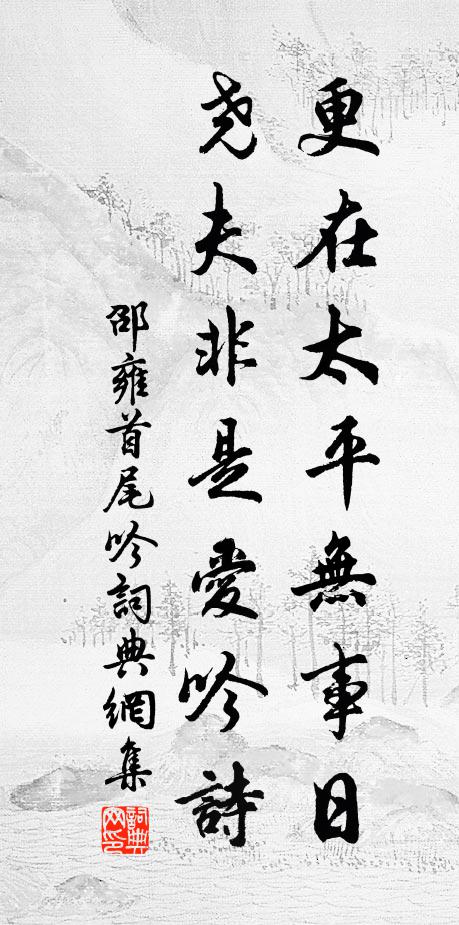 更在太平無事日
堯夫非是愛吟詩
邵雍首尾吟詞典網集
詞典
网印